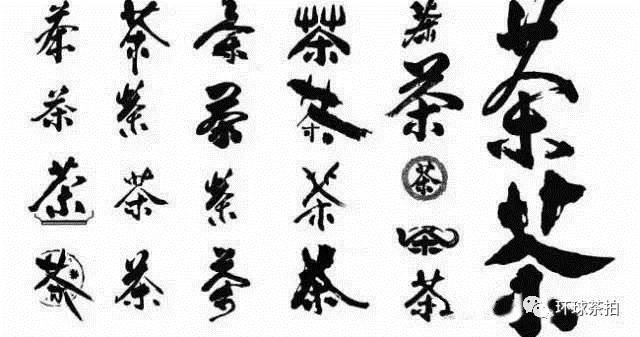 茶 茶 茶 茶 茶 茶
茶 茶 茶 茶 茶
茶 茶 茶 茶 茶 茶
茶 茶 茶 茶 茶
茶
环球茶拍